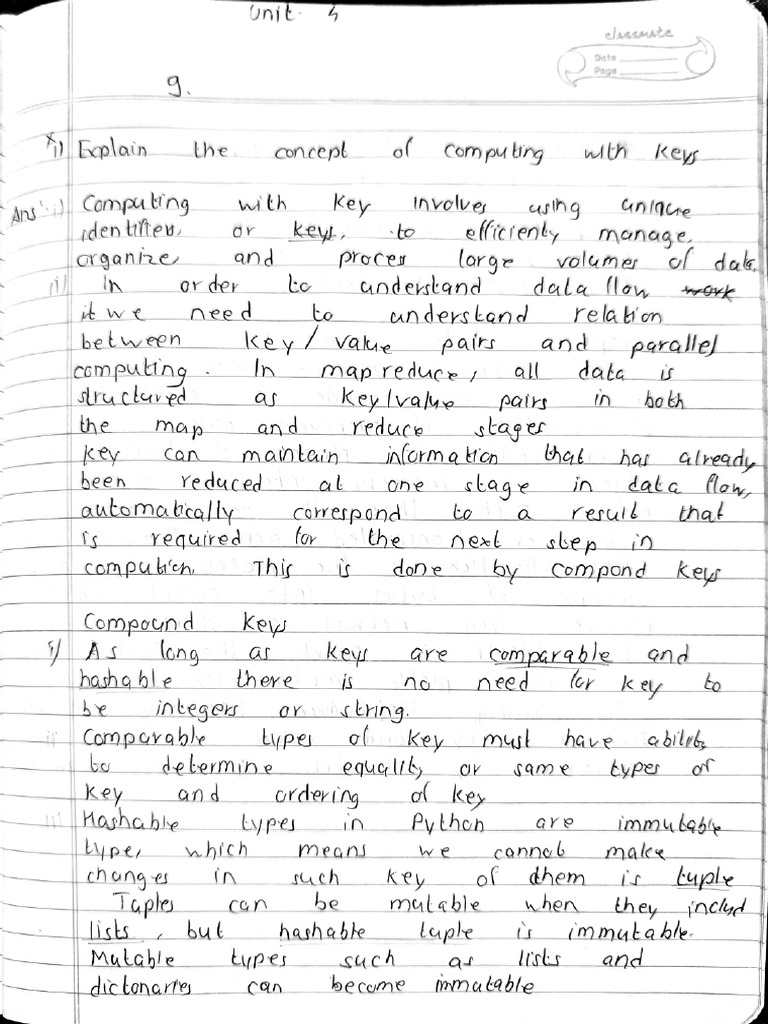 Unit. 3
classmate
Date
Page
9.
*i) Explain the concept of computing with keys
Ans: i) Computing with key involves using unique
identifiers, or keys, to efficienty manage,
organize, and proces large volumes of data.
ii) In order to understand data flow work
it we need to understand relation
between key/value pairs and parallel
computing. In map reduce, all data is
structured as key/value pairs in both
the map and reduce stages
key can maintain information that has already
been reduced at one stage in data flow,
automatically correspond to a result that
is required for the next step in
compution. This is done by compond keys
Compound keys
i) As long as keys are comparable and
hashable there is no need for key to
be integers or string.
ii Comparable types of key must have ability
to determine equality or same types of
key and ordering of key
iii) Hashable types in Python are immutable
type, which means we cannot make
changes in such key of them is tuple
Taples can be mutable when they includ
lists, but hashable tuple is immutable.
Mutable types such as lists and
dictonaries can become immutable